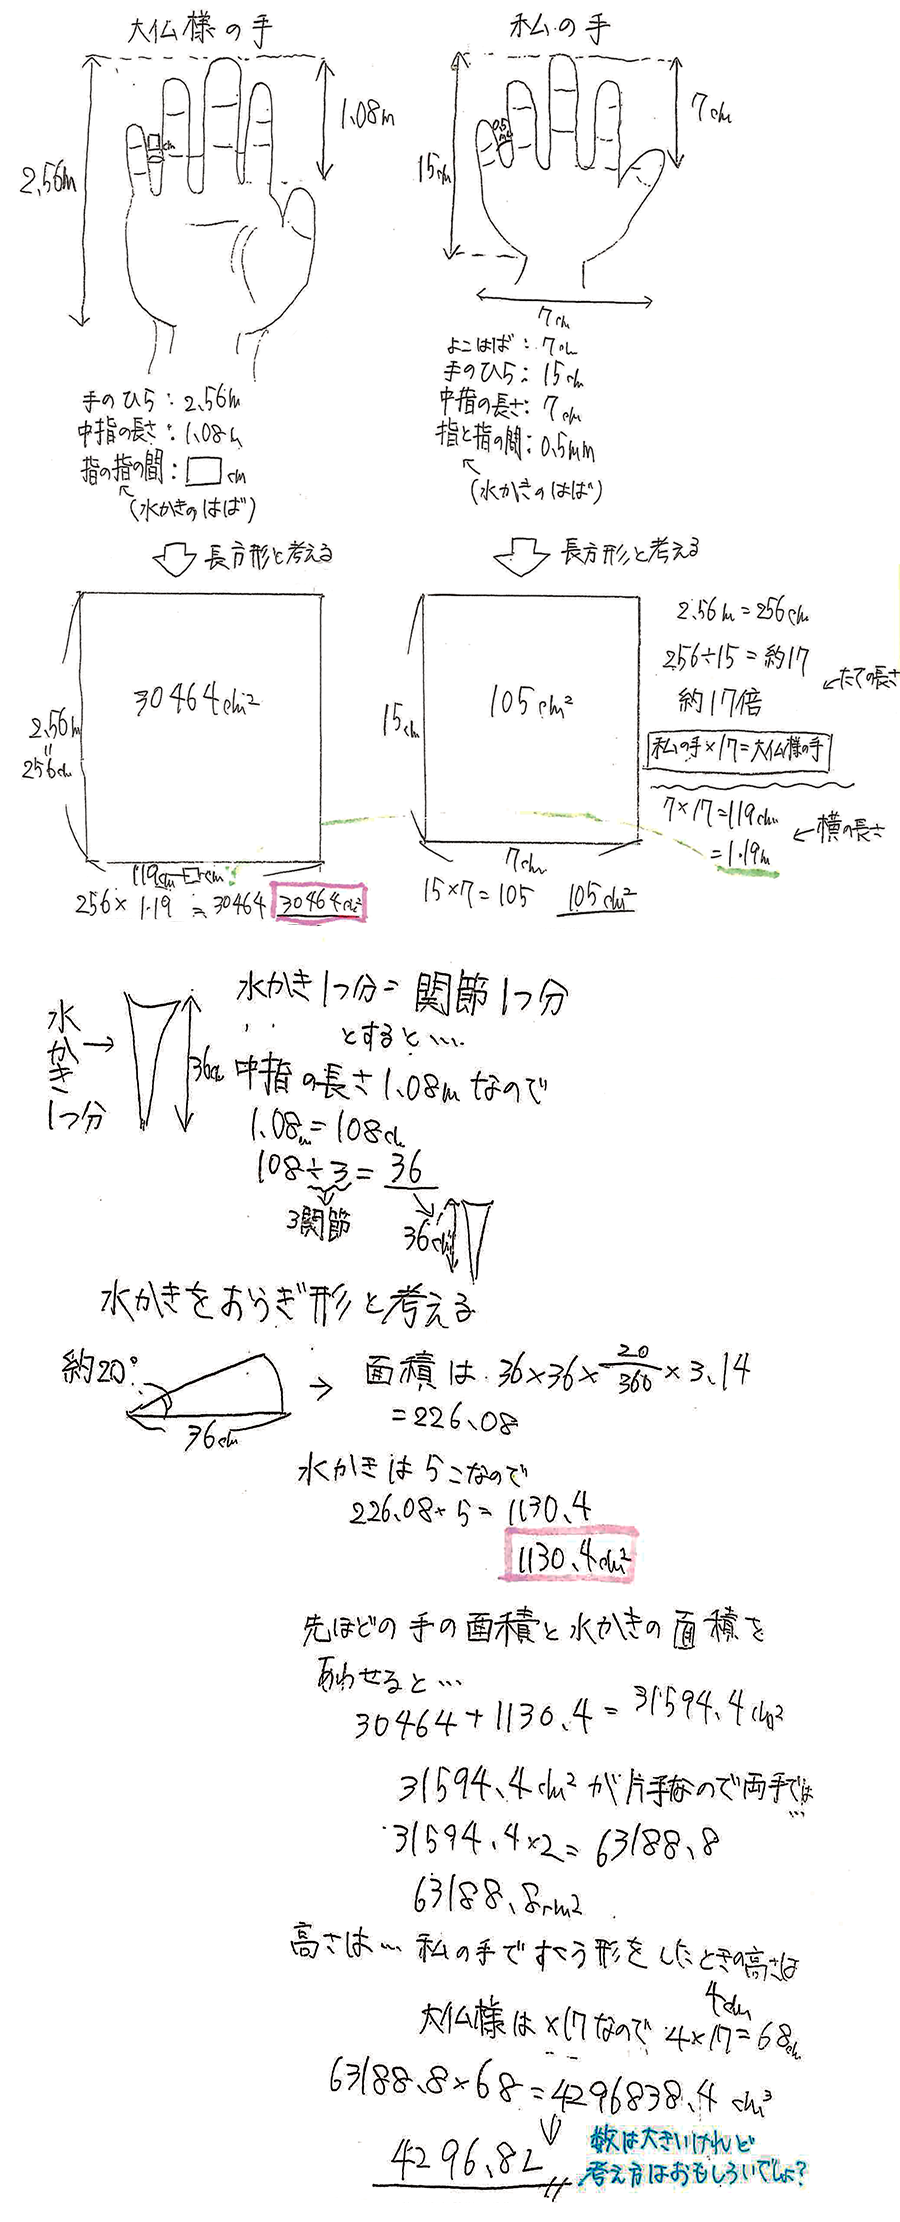 大仏様の手
2.56m
1.08m
□cm
手のひら：2.56m
中指の長さ：1.08m
指の指の間：□cm
(水かきのはば)
私の手
15cm
7cm
0.5mm
7cm
よこはば：7cm
手のひら：15cm
中指の長さ：7cm
指と指の間：0.5mm
(水かきのはば)
長方形と考える
30464cm²
2.56m
=
256cm
119cm □cm
256×1.19=30464 30464cm²
長方形と考える
105cm²
15cm
7cm
15×7=105 105cm²
2.56m=256cm
256÷15=約17
約17倍
←たての長さ
私の手×17=大仏様の手
7×17=119cm
=1.19m
←横の長さ
水かき1つ分→
36cm
水かき1つ分=関節1つ分
とすると…
中指の長さ1.08mなので
1.08m=108cm
108÷3=36
3関節
36cm
水かきをおうぎ形と考える
約20°
36cm
→ 面積は 36×36×20/360×3.14
=226.08
水かきは5こなので
226.08×5=1130.4
1130.4cm²
先ほどの手の面積と水かきの面積を
あわせると…
30464+1130.4=31594.4cm²
31594.4cm²が片手なので両手では…
31594.4×2=63188.8
63188.8cm²
高さは…私の手ですくう形をしたときの高さは
4cm
大仏様は×17なので 4×17=68cm
63188.8×68=4296838.4cm³
4296.8L
数は大きいけれど
考え方はおもしろいでしょ？